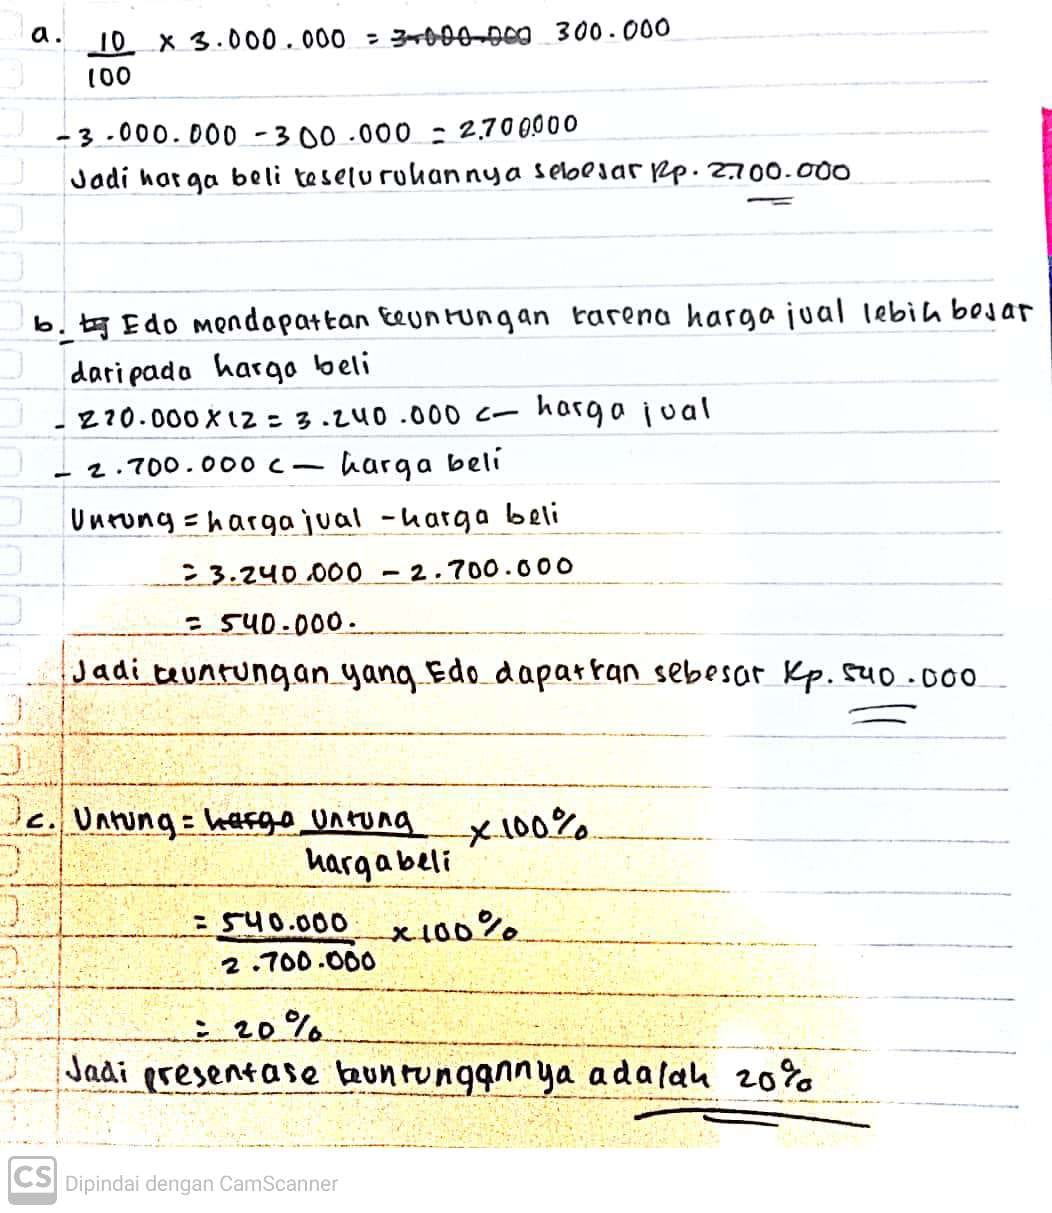 a. 10/100 x 3.000.000 = 3.000.000 300.000
-3.000.000 - 300.000 = 2.700.000
Jadi harga beli keseluruhannya sebesar Rp. 2.700.000
b. Edo mendapatkan keuntungan karena harga jual lebih besar
daripada harga beli
- 270.000 x 12 = 3.240.000 <— harga jual
- 2.700.000 <— harga beli
Untung = harga jual - harga beli
= 3.240.000 - 2.700.000
= 540.000.
Jadi keuntungan yang Edo dapatkan sebesar Rp. 540.000
c. Untung = harga Untung/harga beli x 100%
= 540.000/2.700.000 x 100%
= 20%
Jadi presentase keuntungannya adalah 20%
CS Dipindai dengan CamScanner